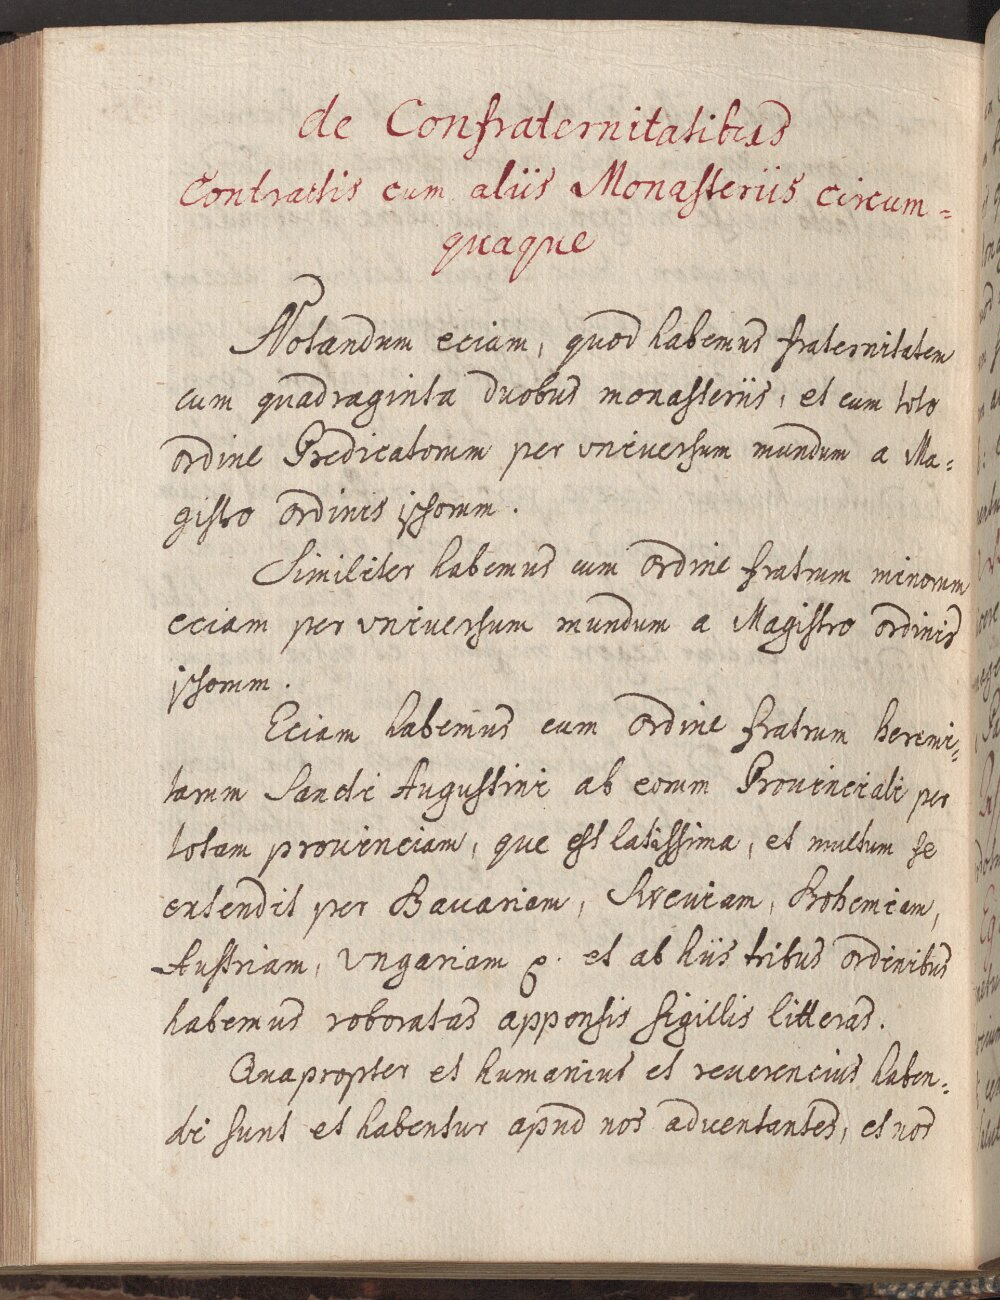 de Confraternitatibus
Contractis cum aliis Monasteriis circum=
quaque
Notandum eciam, quod habemus fraternitatem
cum quadraginta duobus monasteriis, et cum toto
ordine Predicatorum per vniversum mundum a Ma=
gistro ordinis ipsorum.
Similiter habemus cum ordine fratrum minorum
eciam per vniversum mundum a Magistro ordinis
ipsorum.
Eciam habemus cum ordine fratrum heremi=
tarum Sancti Augustini ab eorum Provinciali per
totam provinciam, que est latissima, et multum se
extendit per Bavariam, Sweviam, Bohemiam,
Austriam, Vngariam et ab hiis tribus ordinibus
habemus roboratas apponsis sigillis litteras.
Quapropter et humanius et reverencius haben=
di sunt et habentur apud nos adventantes, et nos